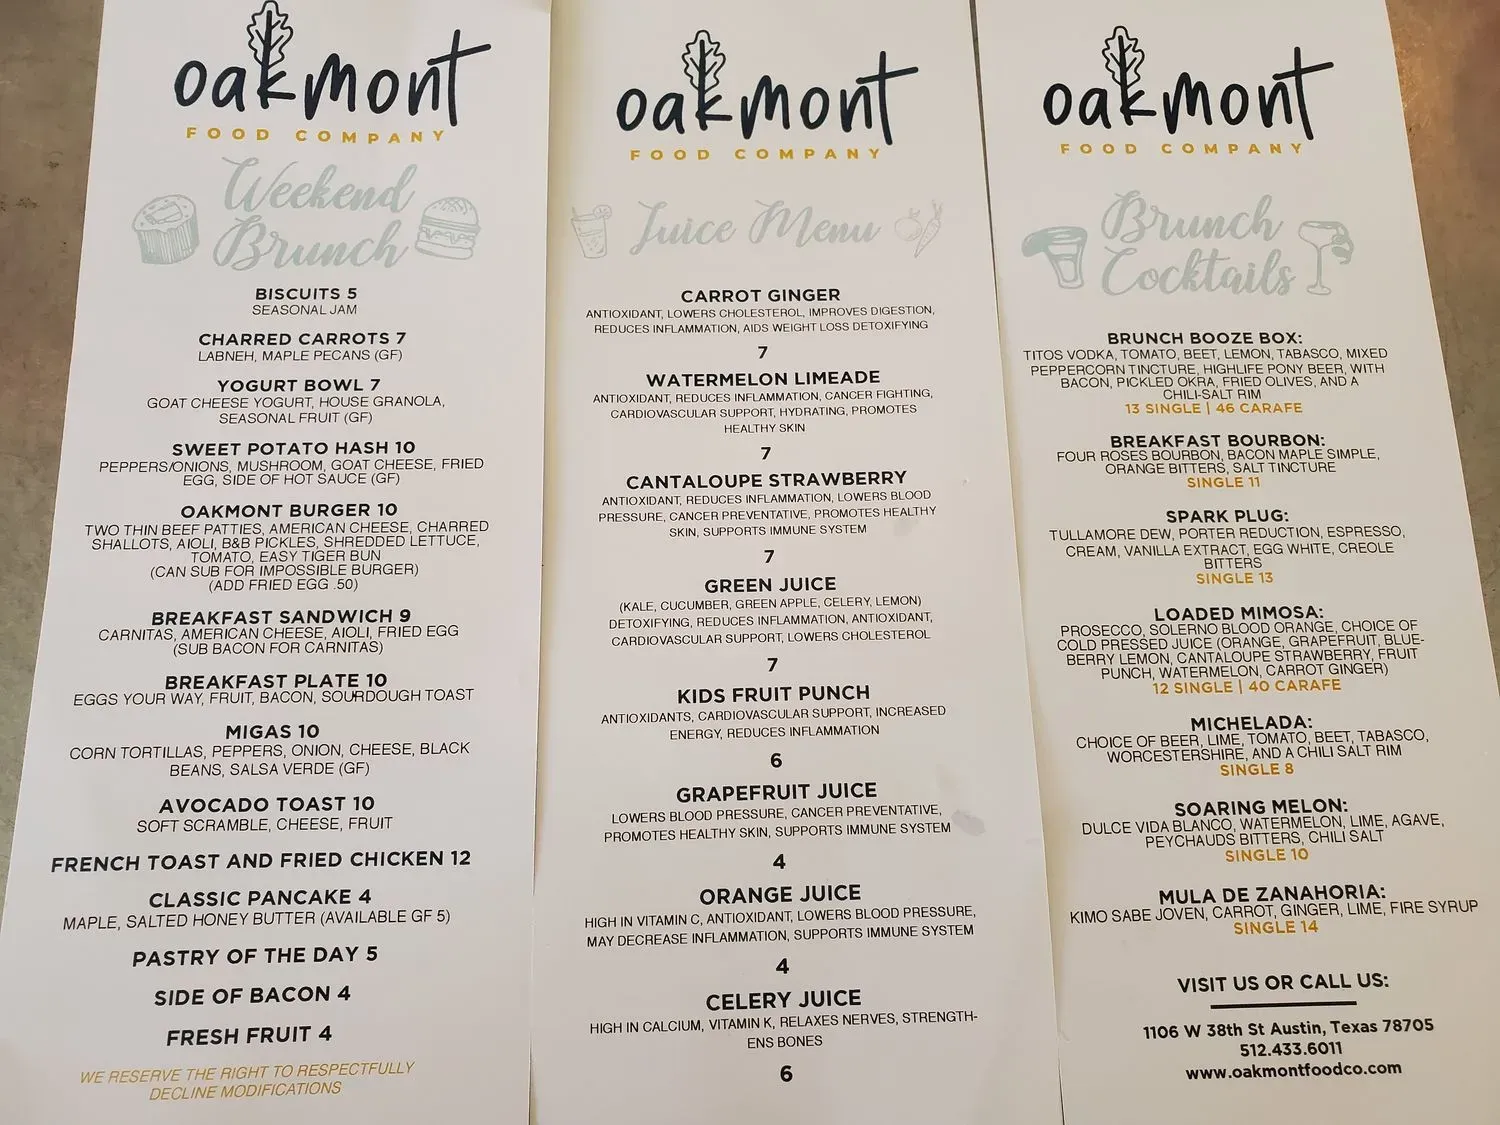 oakmont
FOOD COMPANY
Weekend
Brunch
BISCUITS 5
SEASONAL JAM
CHARRED CARROTS 7
LABNEH, MAPLE PECANS (GF)
YOGURT BOWL 7
GOAT CHEESE YOGURT, HOUSE GRANOLA,
SEASONAL FRUIT (GF)
SWEET POTATO HASH 10
PEPPERS/ONIONS, MUSHROOM, GOAT CHEESE, FRIED
EGG, SIDE OF HOT SAUCE (GF)
OAKMONT BURGER 10
TWO THIN BEEF PATTIES, AMERICAN CHEESE, CHARRED
SHALLOTS, AIOLI, B&B PICKLES, SHREDDED LETTUCE,
TOMATO, EASY TIGER BUN
(CAN SUB FOR IMPOSSIBLE BURGER)
(ADD FRIED EGG .50)
BREAKFAST SANDWICH 9
CARNITAS, AMERICAN CHEESE, AIOLI, FRIED EGG
(SUB BACON FOR CARNITAS)
BREAKFAST PLATE 10
EGGS YOUR WAY, FRUIT, BACON, SOURDOUGH TOAST
MIGAS 10
CORN TORTILLAS, PEPPERS, ONION, CHEESE, BLACK
BEANS, SALSA VERDE (GF)
AVOCADO TOAST 10
SOFT SCRAMBLE, CHEESE, FRUIT
FRENCH TOAST AND FRIED CHICKEN 12
CLASSIC PANCAKE 4
MAPLE, SALTED HONEY BUTTER (AVAILABLE GF 5)
PASTRY OF THE DAY 5
SIDE OF BACON 4
FRESH FRUIT 4
WE RESERVE THE RIGHT TO RESPECTFULLY
DECLINE MODIFICATIONS
oakmont
FOOD COMPANY
Juice Menu
CARROT GINGER
ANTIOXIDANT, LOWERS CHOLESTEROL, IMPROVES DIGESTION,
REDUCES INFLAMMATION, AIDS WEIGHT LOSS DETOXIFYING
7
WATERMELON LIMEADE
ANTIOXIDANT, REDUCES INFLAMMATION, CANCER FIGHTING,
CARDIOVASCULAR SUPPORT, HYDRATING, PROMOTES
HEALTHY SKIN
7
CANTALOUPE STRAWBERRY
ANTIOXIDANT, REDUCES INFLAMMATION, LOWERS BLOOD
PRESSURE, CANCER PREVENTATIVE, PROMOTES HEALTHY
SKIN, SUPPORTS IMMUNE SYSTEM
7
GREEN JUICE
(KALE, CUCUMBER, GREEN APPLE, CELERY, LEMON)
DETOXIFYING, REDUCES INFLAMMATION, ANTIOXIDANT,
CARDIOVASCULAR SUPPORT, LOWERS CHOLESTEROL
7
KIDS FRUIT PUNCH
ANTIOXIDANTS, CARDIOVASCULAR SUPPORT, INCREASED
ENERGY, REDUCES INFLAMMATION
6
GRAPEFRUIT JUICE
LOWERS BLOOD PRESSURE, CANCER PREVENTATIVE,
PROMOTES HEALTHY SKIN, SUPPORTS IMMUNE SYSTEM
4
ORANGE JUICE
HIGH IN VITAMIN C, ANTIOXIDANT, LOWERS BLOOD PRESSURE,
MAY DECREASE INFLAMMATION, SUPPORTS IMMUNE SYSTEM
4
CELERY JUICE
HIGH IN CALCIUM, VITAMIN K, RELAXES NERVES, STRENGTH-
ENS BONES
6
oakmont
FOOD COMPANY
Brunch
Cocktails
BRUNCH BOOZE BOX:
TITOS VODKA, TOMATO, BEET, LEMON, TABASCO, MIXED
PEPPERCORN TINCTURE, HIGHLIFE PONY BEER, WITH
BACON, PICKLED OKRA, FRIED OLIVES, AND A
CHILI-SALT RIM
13 SINGLE | 46 CARAFE
BREAKFAST BOURBON:
FOUR ROSES BOURBON, BACON MAPLE SIMPLE,
ORANGE BITTERS, SALT TINCTURE
SINGLE 11
SPARK PLUG:
TULLAMORE DEW, PORTER REDUCTION, ESPRESSO,
CREAM, VANILLA EXTRACT, EGG WHITE, CREOLE
BITTERS
SINGLE 13
LOADED MIMOSA:
PROSECCO, SOLERNO BLOOD ORANGE, CHOICE OF
COLD PRESSED JUICE (ORANGE, GRAPEFRUIT, BLUE-
BERRY LEMON, CANTALOUPE STRAWBERRY, FRUIT
PUNCH, WATERMELON, CARROT GINGER)
12 SINGLE | 40 CARAFE
MICHELADA:
CHOICE OF BEER, LIME, TOMATO, BEET, TABASCO,
WORCESTERSHIRE, AND A CHILI SALT RIM
SINGLE 8
SOARING MELON:
DULCE VIDA BLANCO, WATERMELON, LIME, AGAVE,
PEYCHAUDS BITTERS, CHILI SALT
SINGLE 10
MULA DE ZANAHORIA:
KIMO SABE JOVEN, CARROT, GINGER, LIME, FIRE SYRUP
SINGLE 14
VISIT US OR CALL US:
1106 W 38th St Austin, Texas 78705
512.433.6011
www.oakmontfoodco.com